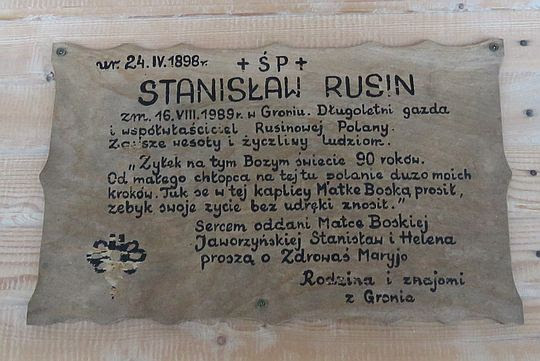 ur. 24.IV.1898r. + Ś P +
STANISŁAW RUSIN
zm. 16.VIII.1989r. w Groniu. Długoletni gazda
i współwłaściciel Rusinowej Polany.
Zawsze wesoły i życzliwy ludziom.
„Zyłek na tym Bozym świecie 90 roków.
Od małego chłopca na tej tu polanie duzo moich
kroków. Tuk se w tej kaplicy Matke Boską prosił,
zebyk swoje zycie bez udręki znosił."
Sercem oddani Matce Boskiej
Jaworzyńskiej Stanisław i Helena
proszą o Zdrowaś Maryjo
Rodzina i znajomi
z Gronia